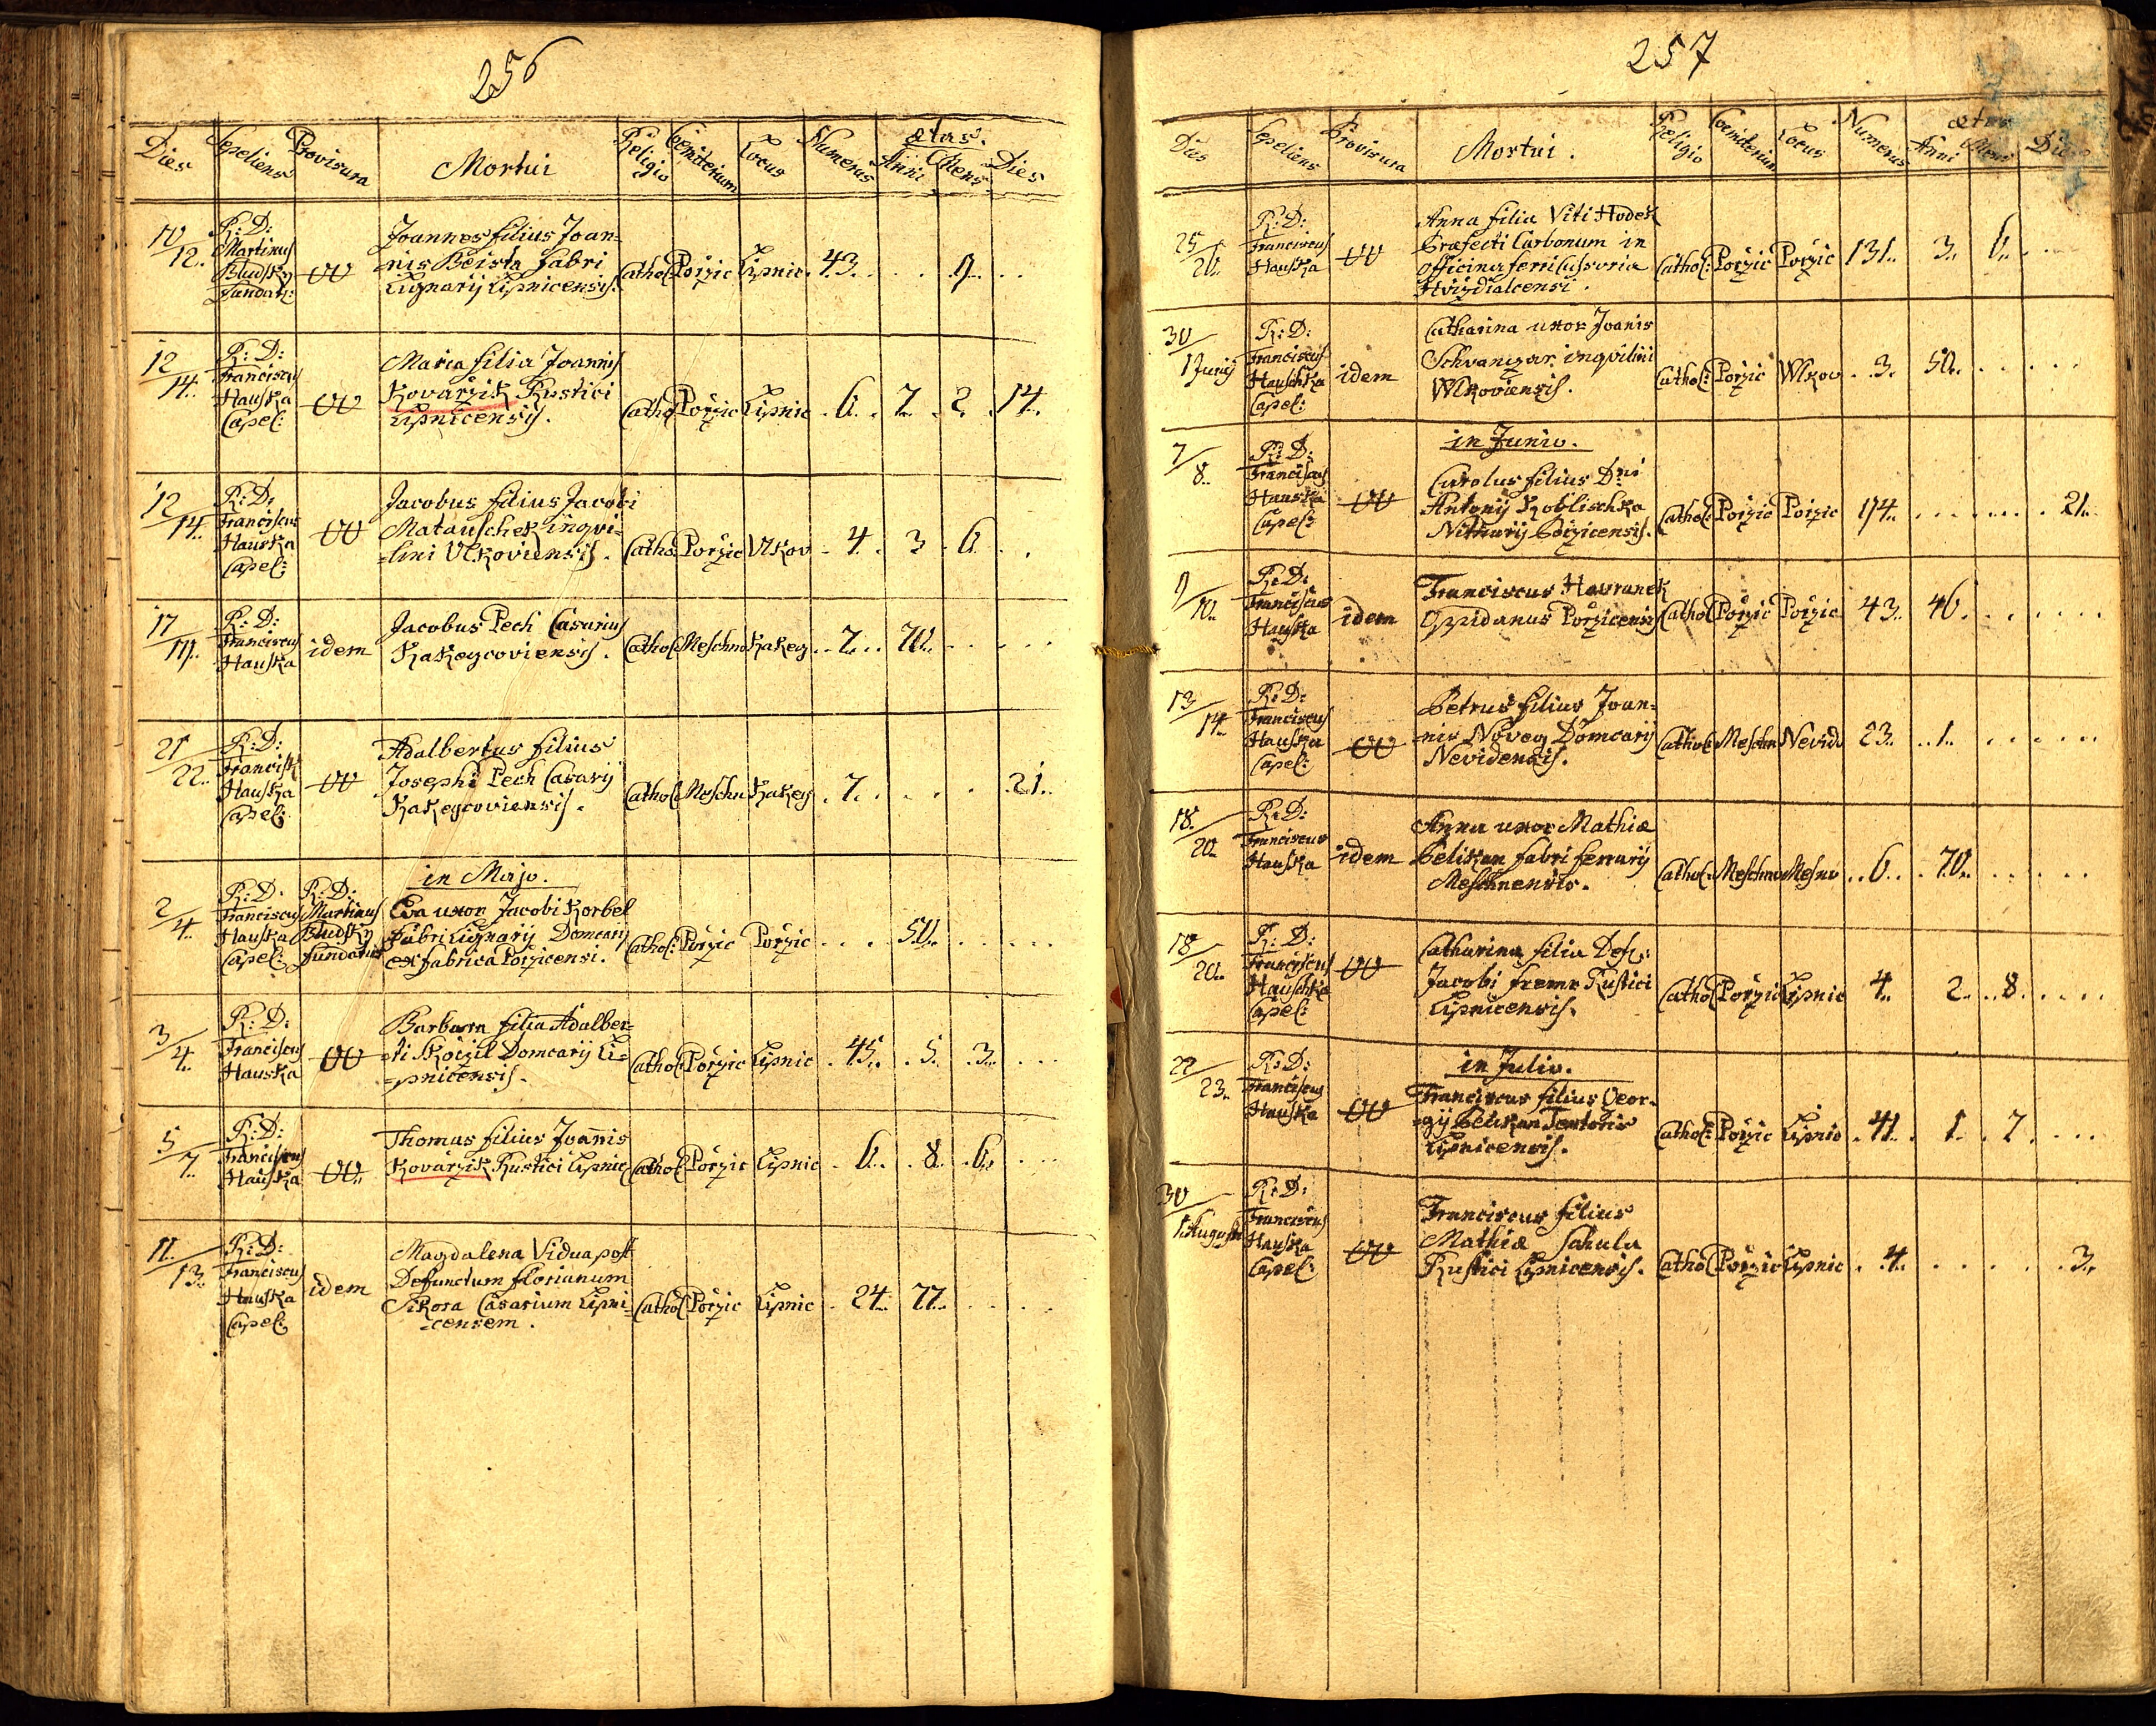 256
Dies Sepeliens Provisura Mortui Religio Coemiterium Locus Numerus ætas.
Anni Mens Dies
10/12. R: D: Martinus Bludsky Fundat:
Joannes filius Joan=
nis Beista Fabri
Lignarij Lipnicensis.
Cathol Poržic Lipnic. 43. . . . 9. . .
12/14. R: D: Franciscus Hauska Capel:
Maria filia Joannis
Kovaržik Rustici
Lipnicensis.
Cathol Poržic Lipnic . 6. . 7. . 2. . 14.
12/14. R: D: Franciscus Hauska Capel:
Jacobus filius Jacobi
Matauschek inqvi=
=lini Vlkoviensis.
Cathol Poržic Vlkov . 4. 3. 6. . .
17/19. R: D: Franciscus Hauska
idem
Jacobus Pech Casarius
Kakeycoviensis.
Cathol Meschno Kakey . . 7. . . 70. . . . . .
21/22. R: D: Francisk Hauska Capel:
Adalbertus filius
Josephi Pech Casarij
Kakeycoviensis.
Cathol Meschn Kakey . 7. . . . . 21.
in Majo.
2/4. R: D. Franciscus Hauska Capel:
R: D: Martinus Bludsky Fundatus
Eva uxor Jacobi Korbel
Fabri Lignarij Domcarij
ex fabrica Poržicensi.
Cathol: Poržic Poržic . . . . 50. . . . .
3/4. R: D: Franciscus Hauska
Barbara filia Adalber=
=ti Skoržil Domcarij Li=
=pnicensis.
Cathol Poržic Lipnic . 45. . 5. . 3. . . .
5/7. R: D: Franciscus Hauska
Thomas filius Joannis
Kovaržik Rustici Lipnic
Cathol Poržic Lipnic . 6. . 8. . 6. . . .
11/13. R: D: Franciscus Hauska Capel:
idem
Magdalena Vidua post
Defunctum Florianum
Sikora Casarium Lipni=
=censem.
Cathol Poržic Lipnic . 24. 77. . . . .
257
Dies Sepeliens Provisura Mortui. Religio Coemiterium Locus Numerus ætas
Anni Mens Dies
25/26. R: D: Franciscus Hauska
Anna filia Viti Hodek
Præfecti Carbonum in
officina ferri cussoria
Hvizdialcensi.
Cathol: Poržic Poržic 131. 3. 6. . . .
30/1 Junij R: D: Franciscus Hauschka Capel:
idem
Catharina uxor Joanis
Schvanzar inqvilini
Wlkoviensis.
Cathol: Poržic Wlkov . 3. 50. . . . . .
in Junio.
7/8. R: D: Franciscus Hauska Capel:
Carolus filius Dni
Antonij Koblischka
Nitriarij Poržicensis.
Cathol: Poržic Poržic 174. . . . . . . 21.
9/10. R: D: Franciscus Hauska
idem
Franciscus Havranek
Oppidanus Poržicensis
Cathol Poržic Poržic 43. 46. . . . . .
13/14. R: D: Franciscus Hauska Capel:
Petrus filius Joan=
=nis Novey Domcarij
Nevidensis.
Cathol: Meschn Nevid 23. . 1. . . . . .
18./20. R: D: Franciscus Hauska
idem
Anna uxor Mathiæ
Pelikan fabri ferrarij
Meschnensis.
Cathol: Meschno Mesno . . 6. . . 70. . . . . .
18/20. R: D: Franciscus Hauschka Capel:
Catharina filia Def:
Jacobi Fremr Rustici
Lipnicensis.
Cathol Poržic Lipnic 4. 2. . 8. . . . .
in Julio.
22/23. R: D: Franciscus Hauska
Franciscus filius Geor-
=gij Pelikan Textoris
Lipnicensis.
Cathol: Poržic Lipnic . 41. . 1. . 7. . . .
30/1 Augusti R: D: Franciscus Hauska Capel:
Franciscus filius
Mathiæ Sakula
Rustici Lipnicensis.
Cathol Poržic Lipnic . . 4. . . . . . 3.